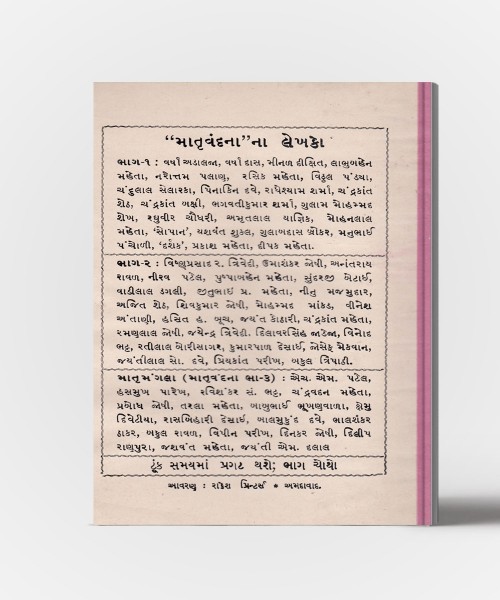 “માતૃવંદના”ના લેખકો
ભાગ-૧ : વર્ષા અડાલજા, વર્ષા દાસ, મીનળ દીક્ષિત, લાભુબહેન
મહેતા, નરોત્તમ પલાણ, રસિક મહેતા, વિઠ્ઠલ પંડ્યા,
ચંદુલાલ સેલારકા, પિનાકિન દવે, રાધેશ્યામ શર્મા, ચંદ્રકાંત
શેઠ, ચંદ્રકાંત બક્ષી, ભગવતીકુમાર શર્મા, ગુલામ મોહમ્મદ
શેખ, રઘુવીર ચૌધરી, અમૃતલાલ યાજ્ઞિક, મોહનલાલ
મહેતા, ‘સોપાન’, યશવંત શુકલ, ગુલાબદાસ બ્રોકર, મનુભાઈ
પંચોળી, ‘દર્શક’, પ્રકાશ મહેતા, દીપક મહેતા.
ભાગ-૨ : વિષ્ણુપ્રસાદ ર. ત્રિવેદી, ઉમાશંકર જોષી, અનંતરાય
રાવળ, નીરવ પટેલ, પુષ્પાબહેન મહેતા, સુંદરજી બેટાઈ,
વાડીલાલ ડગલી, જીતુભાઈ પ્ર. મહેતા, નીનુ મજમુદાર,
અજિત શેઠ, શિવકુમાર જોષી, મોહમ્મદ માંકડ, વીનેશ
અંતાણી, હસિત હ. બૂચ, જયંત કોઠારી, ચંદ્રકાંત મહેતા,
રમણલાલ જોષી, જયેન્દ્ર ત્રિવેદી, દિલાવરસિંહ જાડેજા, વિનોદ
ભટ્ટ, રતીલાલ બોરીસાગર, કુમારપાળ દેસાઈ, જોસેફ મેકવાન,
જયંતીલાલ સો. દવે, પ્રિયકાંત પરીખ, બકુલ ત્રિપાઠી.
માતૃમંગલા (માતૃવંદના ભા-૩) : એચ. એમ. પટેલ,
હસમુખ પારેખ, રવિશંકર સં. ભટ્ટ, ચંદ્રવદન મહેતા,
પ્રબોધ જોષી, તરલા મહેતા, બાબુભાઈ ભૂખણવાળા, કોસુ
દિવેટીયા, રાસબિહારી દેસાઈ, બાલમુકુંદ દવે, ભાલશંકર
ઠાકર, બકુલ રાવળ, વિપીન પરીખ, દિનકર જોષી, દિલીપ
રાણપુરા, જશવંત મહેતા, જયંતી એમ. દલાલ
ટૂંક સમયમાં પ્રગટ થશે; ભાગ ચોથો
આવરણ : રાકેશ પ્રિન્ટર્સ * અમદાવાદ.